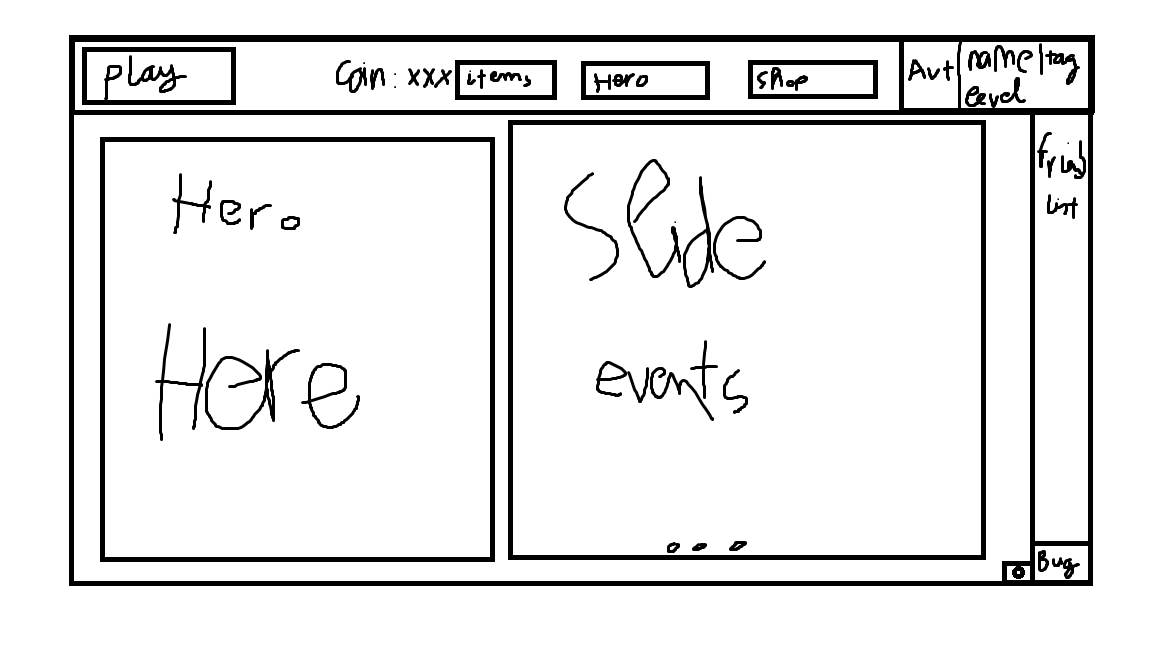 play
Coin: xxx
items
Hero
shop
Avt
name/tag
level
Hero
Here
Slide
events
list
Bug